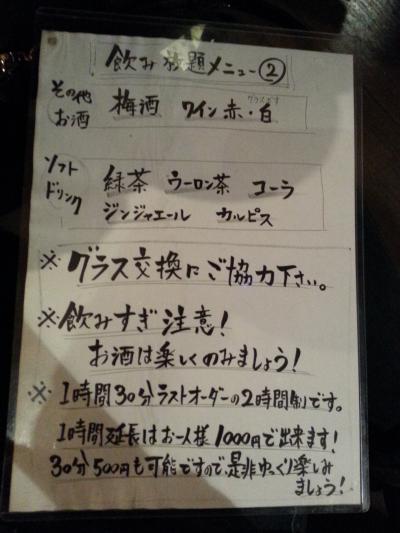 飲み放題メニュー②
その他
お酒
梅酒 ワイン赤・白
グラスです
ソフト
ドリンク
緑茶 ウーロン茶 コーラ
ジンジャエール カルピス
※グラス交換にご協力下さい。
※飲みすぎ注意!
お酒は楽しくのみましょう!
※1時間30分ラストオーダーの2時間制です。
1時間延長はお一人様1000円で出来ます!
30分500円も可能ですので、是非ゆっくり楽しみ
ましょう!